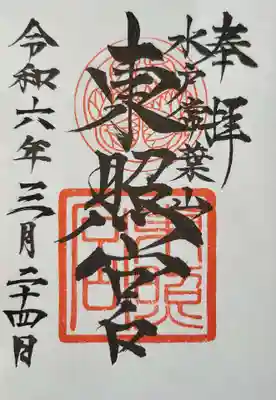 奉拝
水戸常葉山
東照宮
令和六年三月二十四日